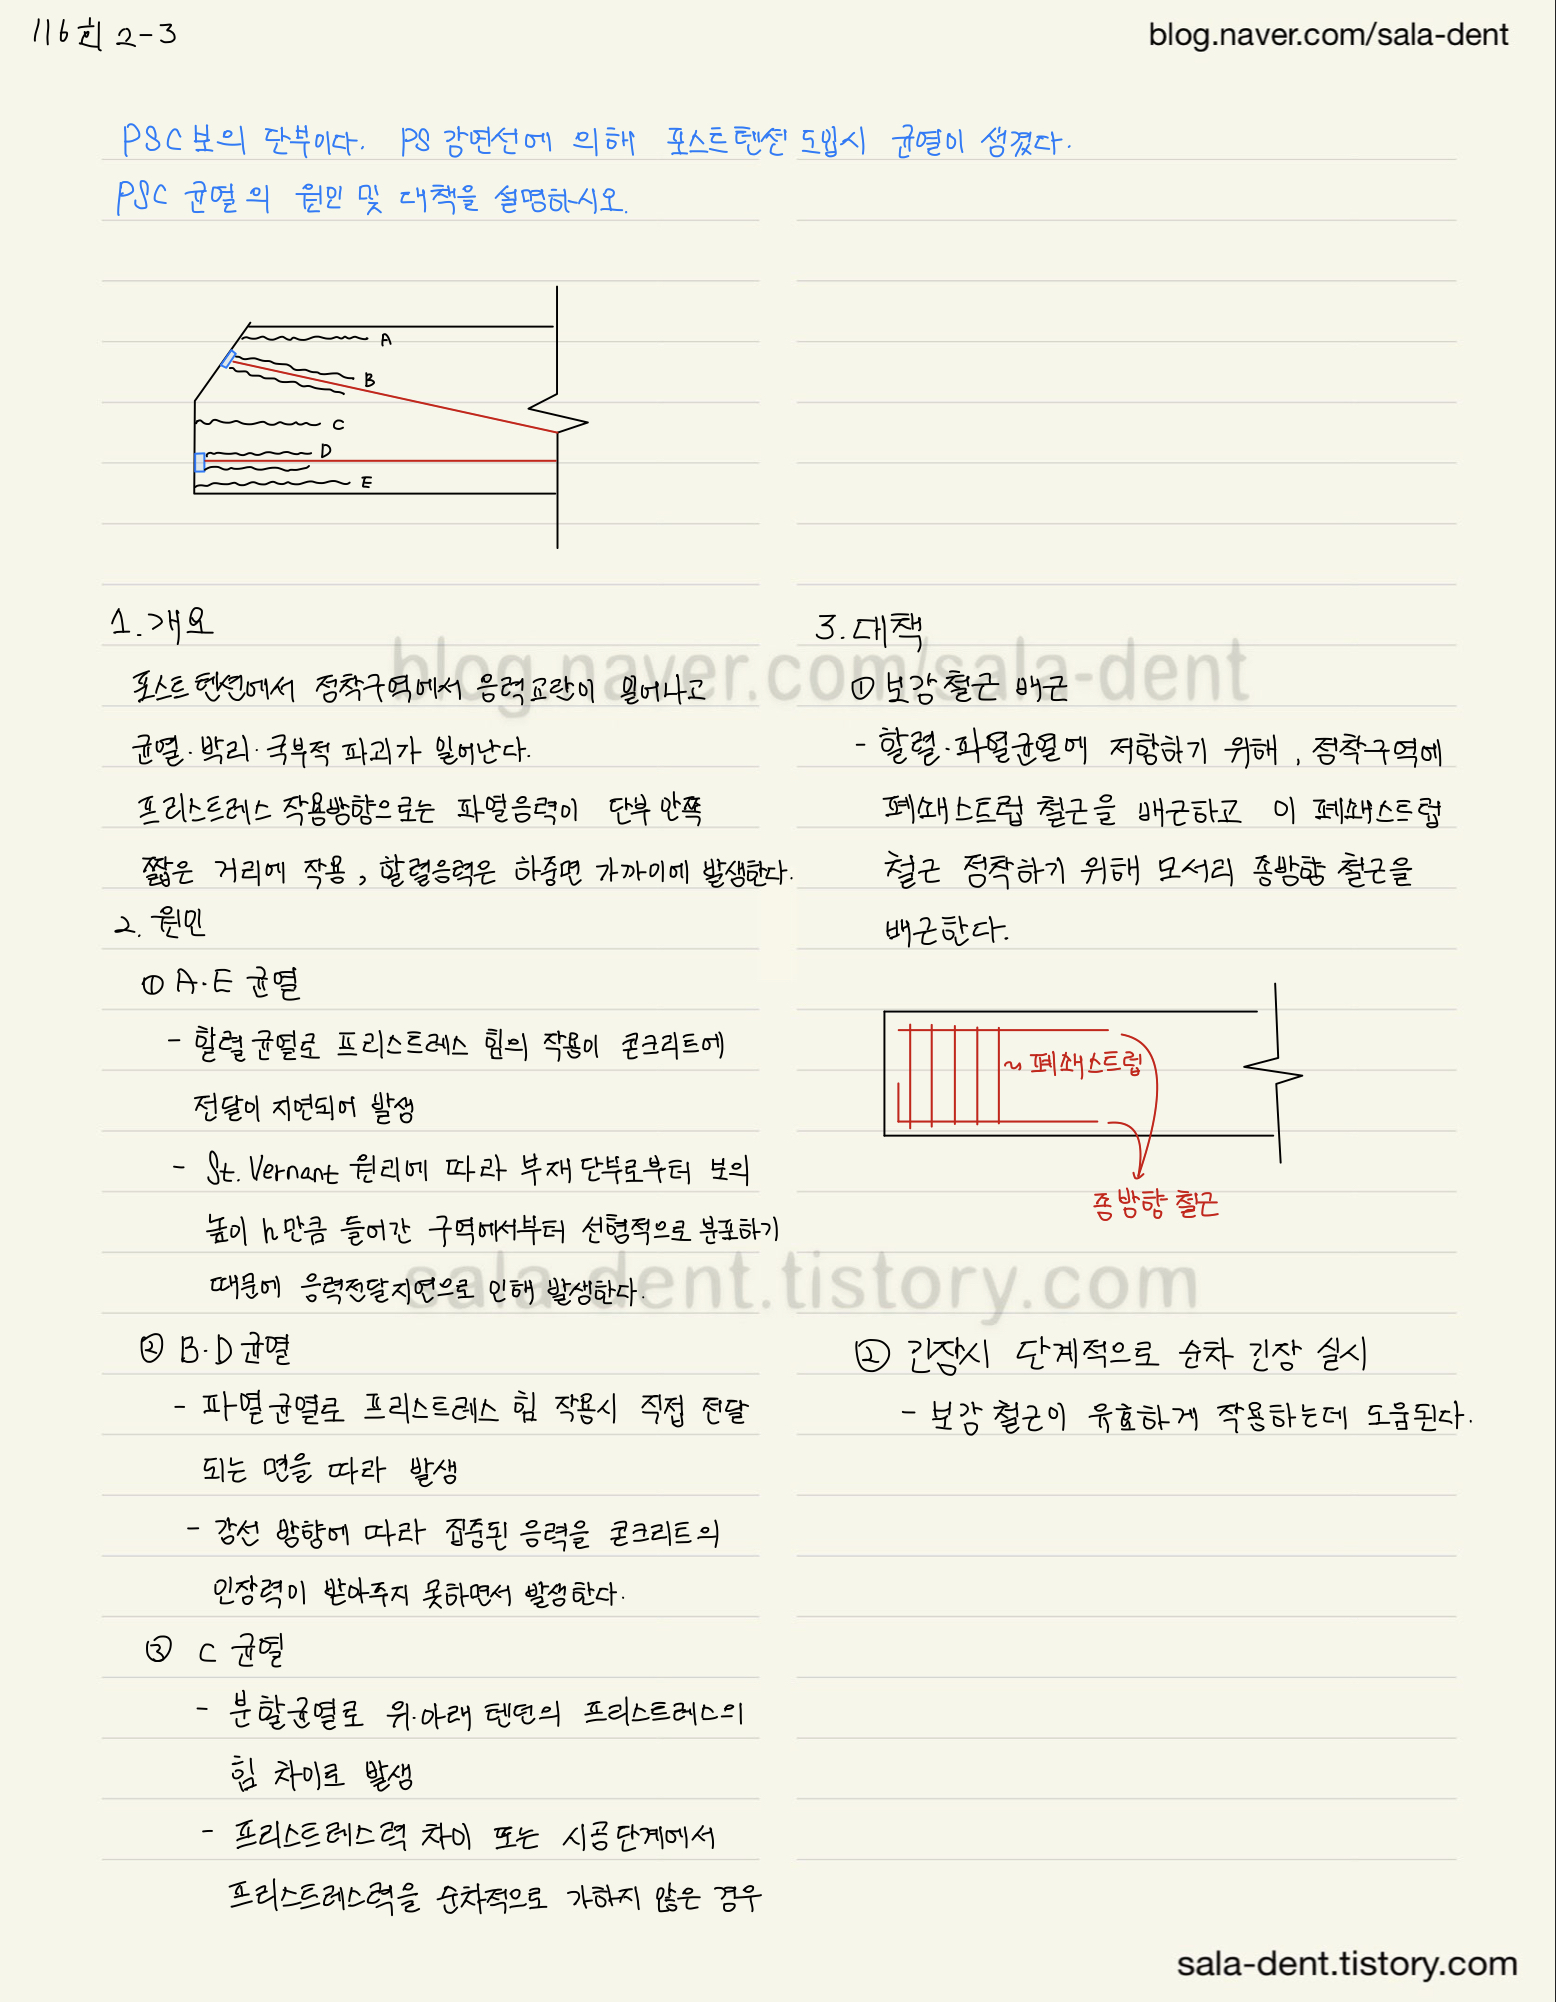 116회 2-3
blog.naver.com/sala-dent
PSC보의 단부이다. PS강연선에 의해 포스트텐션 도입시 균열이 생겼다.
PSC 균열의 원인 및 대책을 설명하시오.
A
B
C
D
E
1. 개요
포스트텐션에서 정착구역에서 응력교란이 일어나고
균열·박리·국부적 파괴가 일어난다.
프리스트레스 작용방향으로는 파열응력이 단부 안쪽
짧은 거리에 작용, 할렬응력은 하중면 가까이에 발생한다.
2. 원인
① A·E 균열
- 할렬균열로 프리스트레스 힘의 작용이 콘크리트에
전달이 지연되어 발생
- St. Vernant 원리에 따라 부재단부로부터 보의
높이 h만큼 들어간 구역에서부터 선형적으로 분포하기
때문에 응력전달지연으로 인해 발생한다.
② B·D 균열
- 파열균열로 프리스트레스 힘 작용시 직접 전달
되는 면을 따라 발생
- 강선 방향에 따라 집중된 응력을 콘크리트의
인장력이 받아주지 못하면서 발생한다.
③ C 균열
- 분할균열로 위·아래 텐던의 프리스트레스의
힘 차이로 발생
- 프리스트레스력 차이 또는 시공단계에서
프리스트레스력을 순차적으로 가하지 않은 경우
3. 대책
① 보강철근 배근
- 할렬·파열균열에 저항하기 위해, 정착구역에
폐쇄스트럽 철근을 배근하고 이 폐쇄스트럽
철근 정착하기 위해 모서리 종방향 철근을
배근한다.
~ 폐쇄스트럽
종방향 철근
② 긴장시 단계적으로 순차 긴장 실시
- 보강 철근이 유효하게 작용하는데 도움된다.
blog.naver.com/sala-dent
sala-dent.tistory.com
sala-dent.tistory.com